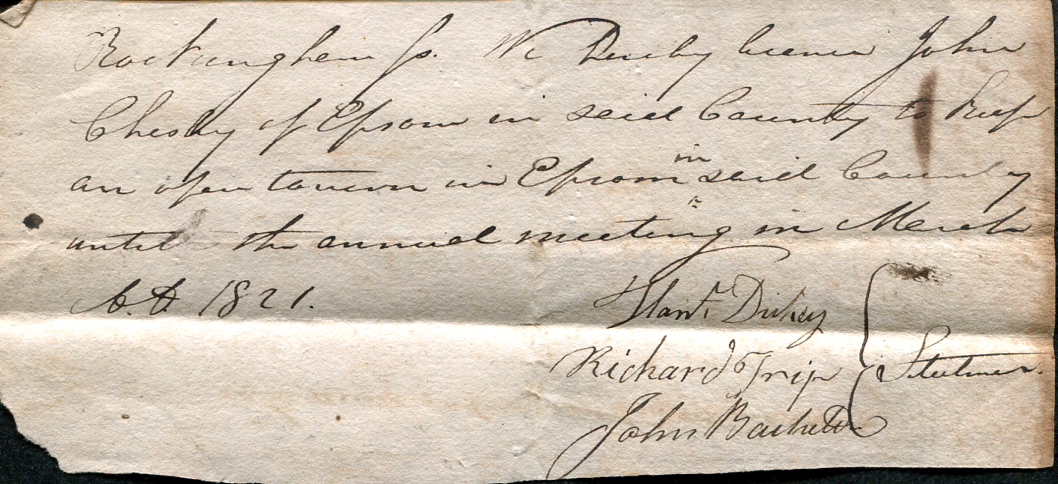 Rockingham ss. We Hereby licence John
Chesley of Epsom in said County to keep
an open tavern in Epsom in said County
until the annual meeting in March
A.D 1821.
Hanr. Dickey
Richard Tripp
John Bachelder
Selectmen.